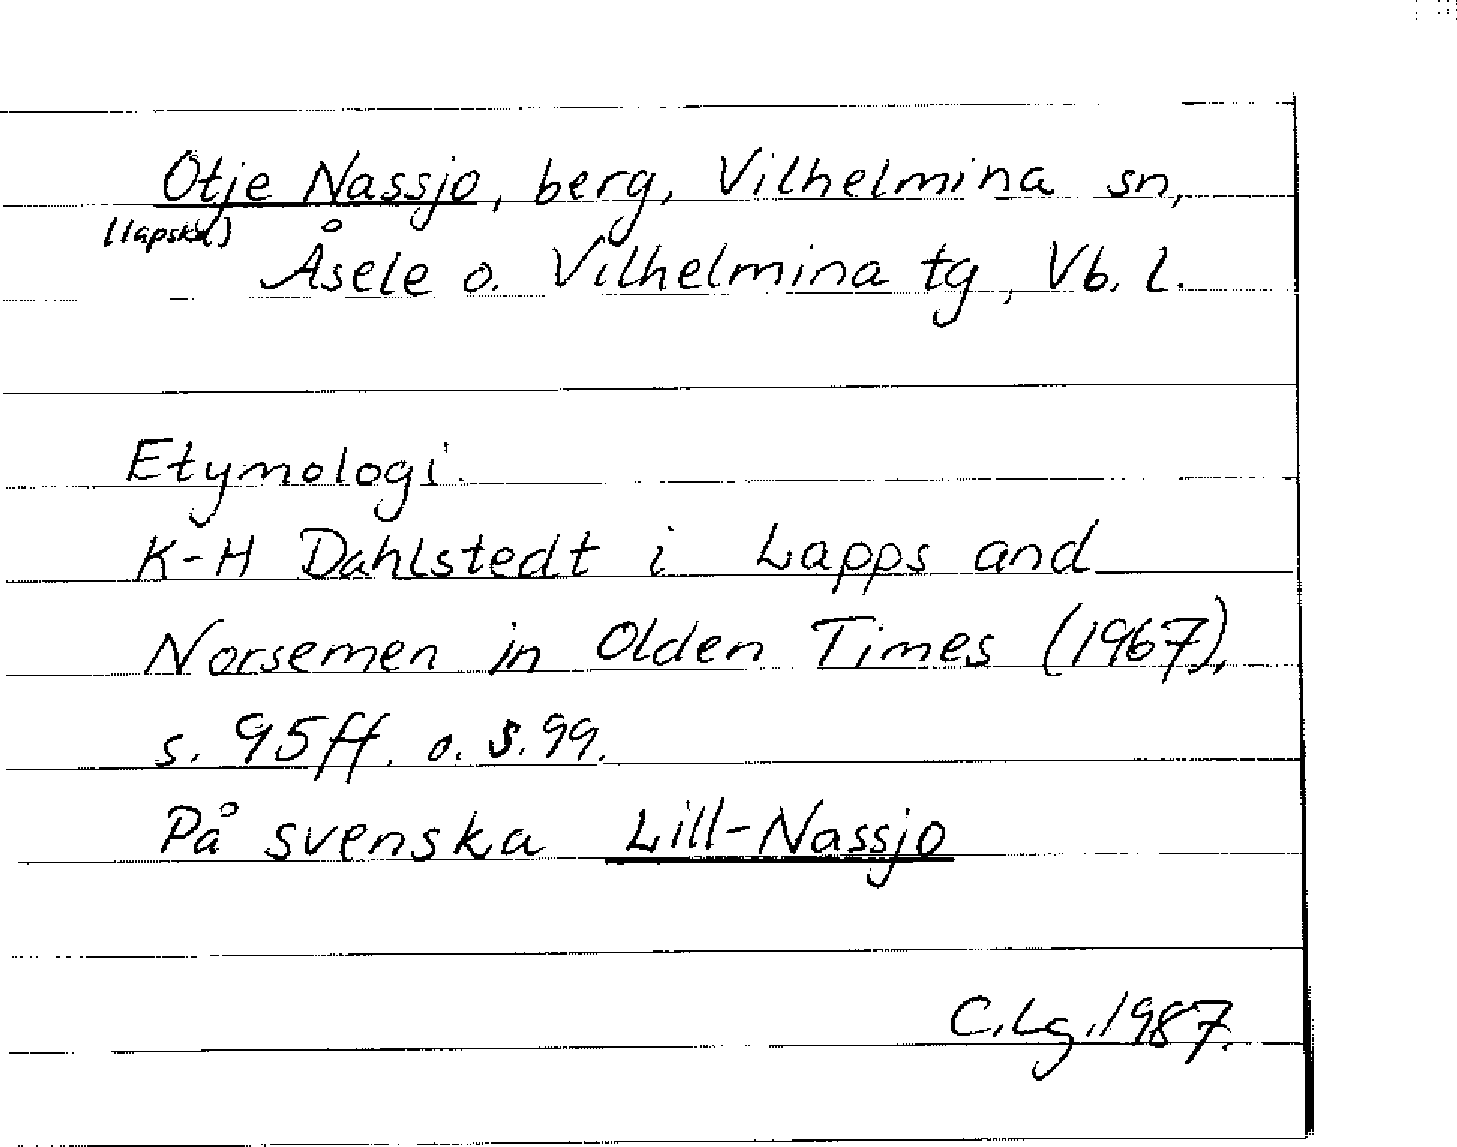 Otje Nassjo, berg, Vilhelmina sn,
(lapska)
Åsele o. Vilhelmina tg, Vb. l.
Etymologi.
K-H Dahlstedt i Lapps and
Norsemen in Olden Times (1967),
s. 95ff. o. s. 99.
På svenska Lill-Nassjo
C.Lg. 1987.